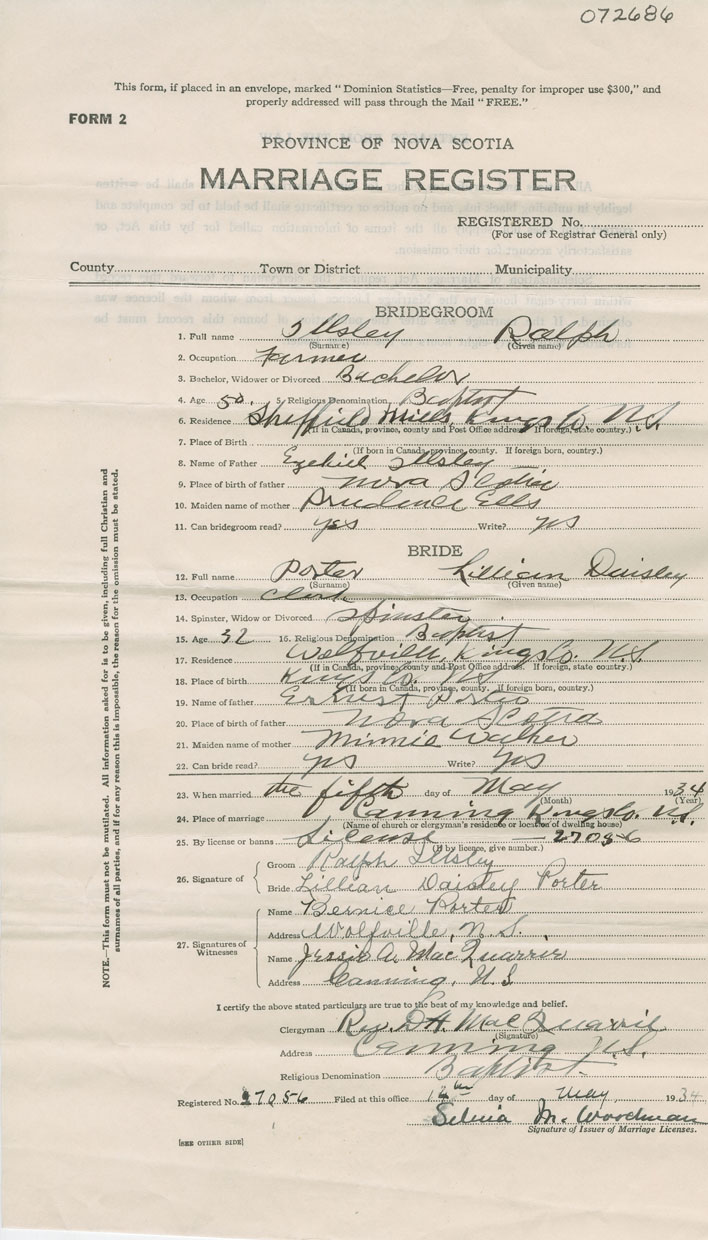 072686
This form, if placed in an envelope, marked "Dominion Statistics—Free, penalty for improper use $300," and
properly addressed will pass through the Mail "FREE."
FORM 2
PROVINCE OF NOVA SCOTIA
MARRIAGE REGISTER
REGISTERED No.
(For use of Registrar General only)
County Town or District Municipality
BRIDEGROOM
1. Full name Illsley Ralph
(Surname) (Given name)
2. Occupation Farmer
3. Bachelor, Widower or Divorced Bachelor
4. Age 50. 5. Religious Denomination Baptist
6. Residence Sheffield Mills, Kings Co. N.S.
(If in Canada, province, county and Post Office address. If foreign, state country.)
7. Place of Birth
(If born in Canada, province, county. If foreign born, country.)
8. Name of Father Ezekiel Illsley
9. Place of birth of father Nova Scotia
10. Maiden name of mother Prudence Ells
11. Can bridegroom read? yes Write? yes
BRIDE
12. Full name Porter Lillian Daisley
(Surname) (Given name)
13. Occupation Clerk
14. Spinster, Widow or Divorced Spinster
15. Age 32 16. Religious Denomination Baptist
17. Residence Wolfville, Kings Co. N.S.
(If in Canada, province, county and Post Office address. If foreign, state country.)
18. Place of birth Kings Co. N.S.
(If born in Canada, province, county. If foreign born, country.)
19. Name of father Ernest
20. Place of birth of father Nova Scotia
21. Maiden name of mother Minnie Walker
22. Can bride read? yes Write? yes
23. When married the fifth day of May 1934
(Month) (Year)
24. Place of marriage Canning Kings Co. N.S.
(Name of church or clergyman's residence or location of dwelling house)
25. By license or banns License —
(If by licence, give number.)
26. Signature of
Groom Ralph Illsley
Bride Lillian Daisley Porter
27. Signatures of Witnesses
Name Bernice Porter
Address Wolfville, N.S.
Name Jessie A. MacQuarrie
Address Canning, N.S
I certify the above stated particulars are true to the best of my knowledge and belief.
Clergyman Rev. D.H. MacQuarrie
(Signature)
Address Canning N.S.
Religious Denomination Baptist.
Registered No. 27056 Filed at this office 12th day of May 1934
Selina M. Woodman
Signature of Issuer of Marriage Licenses.
[SEE OTHER SIDE]
NOTE.—This form must not be mutilated. All information asked for is to be given, including full Christian and
surnames of all parties, and if for any reason this is impossible, the reason for the omission must be stated.